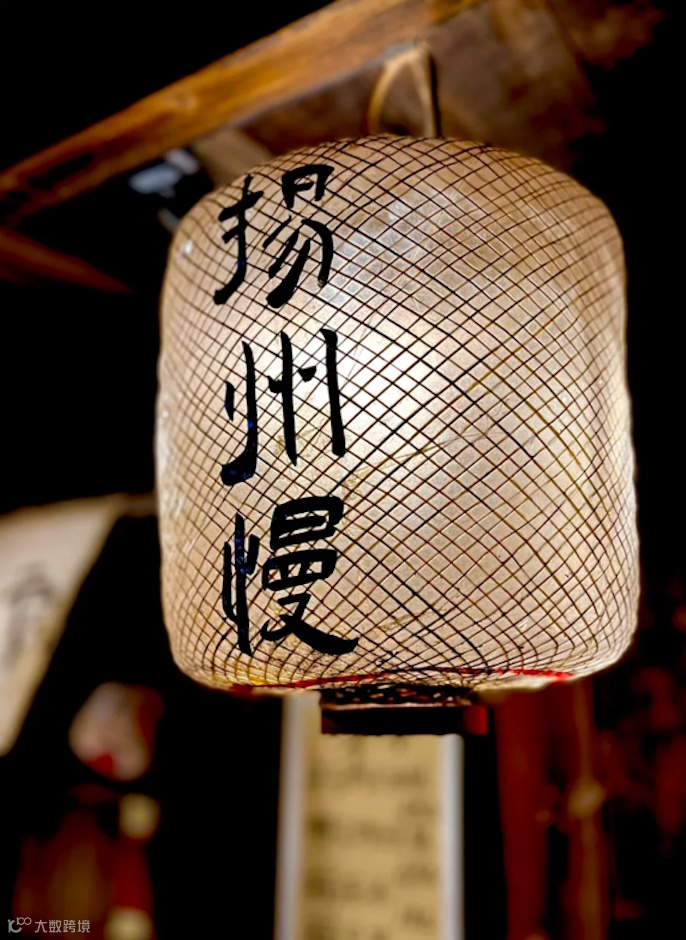 揚州慢
大数跨境